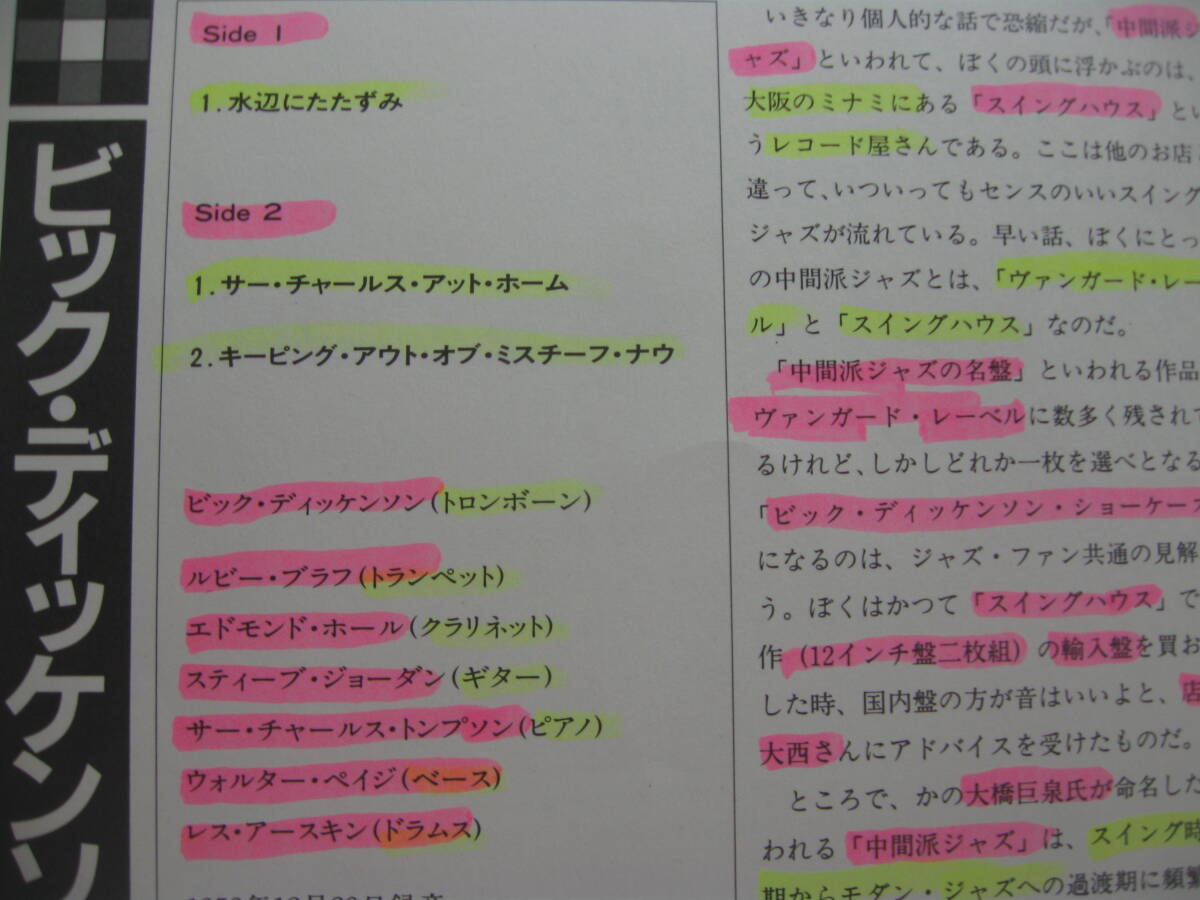 ビック・ディッケンソ
Side 1
1.水辺にたたずみ
Side 2
1.サー・チャールス・アット・ホーム
2.キーピング・アウト・オブ・ミスチーフ・ナウ
ビック・ディッケンソン(トロンボーン)
ルビー・ブラフ(トランペット)
エドモンド・ホール(クラリネット)
スティーブ・ジョーダン(ギター)
サー・チャールス・トンプソン(ピアノ)
ウォルター・ペイジ(ベース)
レス・アースキン(ドラムス)
いきなり個人的な話で恐縮だが、「中間派ジ
ャズ」といわれて、ぼくの頭に浮かぶのは、
大阪のミナミにある「スイングハウス」とい
うレコード屋さんである。ここは他のお店
違って、いついってもセンスのいいスイング
ジャズが流れている。早い話、ぼくにとっ
の中間派ジャズとは、「ヴァンガード・レー
ル」と「スイングハウス」なのだ。
「中間派ジャズの名盤」といわれる作品
ヴァンガード・レーベルに数多く残されて
るけれど、しかしどれか一枚を選べとなる
「ビック・ディッケンソン・ショーケース
になるのは、ジャズ・ファン共通の見解
う。ぼくはかつて「スイングハウス」で
作(12インチ盤二枚組)の輸入盤を買お
した時、国内盤の方が音はいいよと、店
大西さんにアドバイスを受けたものだ。
ところで、かの大橋巨泉氏が命名した
われる「中間派ジャズ」は、スイング時
期からモダン・ジャズへの過渡期に頻繁